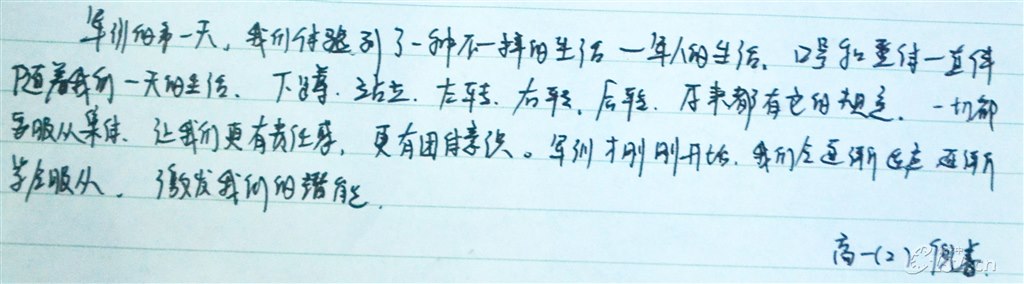 军训的第一天，我们体验到了一种不一样的生活一军人的生活。口号和重待一直伴
随着我们一天的生活、下蹲、站立、左转、右转、后转、原来都有它的规定，一切都
要服从集体、让我们更有责任感，更有团体意识。军训才刚刚开始，我们会逐渐适应 逐渐
学会服从，激发我们的潜能。
高一(2) 倪